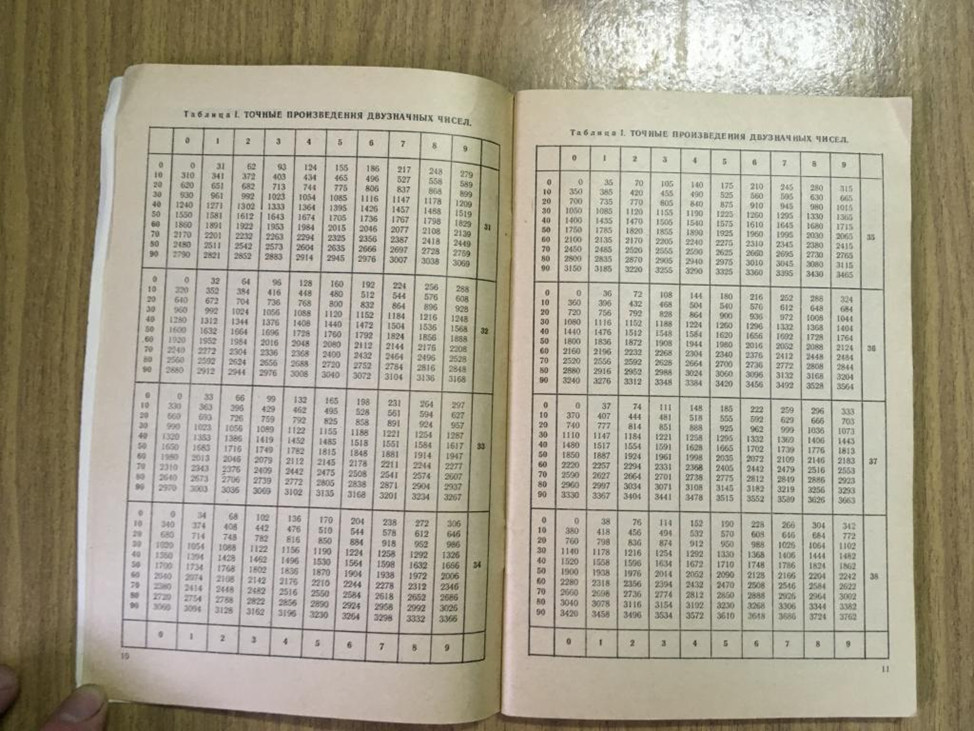 Таблица I. ТОЧНЫЕ ПРОИЗВЕДЕНИЯ ДВУЗНАЧНЫХ ЧИСЕЛ.
0 1 2 3 4 5 6 7 8 9
0 0 31 62 93 124 155 186 217 248 279
10 310 341 372 403 434 465 496 527 558 589
20 620 651 682 713 744 775 806 837 868 899
30 930 961 992 1023 1054 1085 1116 1147 1178 1209
40 1240 1271 1302 1333 1364 1395 1426 1457 1488 1519
50 1550 1581 1612 1643 1674 1705 1736 1767 1798 1829 31
60 1860 1891 1922 1953 1984 2015 2046 2077 2108 2139
70 2170 2201 2232 2263 2294 2325 2356 2387 2418 2449
80 2480 2511 2542 2573 2604 2635 2666 2697 2728 2759
90 2790 2821 2852 2883 2914 2945 2976 3007 3038 3069
0 0 32 64 96 128 160 192 224 256 288
10 320 352 384 416 448 480 512 544 576 608
20 640 672 704 736 768 800 832 864 896 928
30 960 992 1024 1056 1088 1120 1152 1184 1216 1248
40 1280 1312 1344 1376 1408 1440 1472 1504 1536 1568
50 1600 1632 1664 1696 1728 1760 1792 1824 1856 1888 32
60 1920 1952 1984 2016 2048 2080 2112 2144 2176 2208
70 2240 2272 2304 2336 2368 2400 2432 2464 2496 2528
80 2560 2592 2624 2656 2688 2720 2752 2784 2816 2848
90 2880 2912 2944 2976 3008 3040 3072 3104 3136 3168
0 0 33 66 99 132 165 198 231 264 297
10 330 363 396 429 462 495 528 561 594 627
20 660 693 726 759 792 825 858 891 924 957
30 990 1023 1056 1089 1122 1155 1188 1221 1254 1287
40 1320 1353 1386 1419 1452 1485 1518 1551 1584 1617
50 1650 1683 1716 1749 1782 1815 1848 1881 1914 1947 33
60 1980 2013 2046 2079 2112 2145 2178 2211 2244 2277
70 2310 2343 2376 2409 2442 2475 2508 2541 2574 2607
80 2640 2673 2706 2739 2772 2805 2838 2871 2904 2937
90 2970 3003 3036 3069 3102 3135 3168 3201 3234 3267
0 0 34 68 102 136 170 204 238 272 306
10 340 374 408 442 476 510 544 578 612 646
20 680 714 748 782 816 850 884 918 952 986
30 1020 1054 1088 1122 1156 1190 1224 1258 1292 1326
40 1360 1394 1428 1462 1496 1530 1564 1598 1632 1666
50 1700 1734 1768 1802 1836 1870 1904 1938 1972 2006 34
60 2040 2074 2108 2142 2176 2210 2244 2278 2312 2346
70 2380 2414 2448 2482 2516 2550 2584 2618 2652 2686
80 2720 2754 2788 2822 2856 2890 2924 2958 2992 3026
90 3060 3094 3128 3162 3196 3230 3264 3298 3332 3366
0 1 2 3 4 5 6 7 8 9
10
Таблица I. ТОЧНЫЕ ПРОИЗВЕДЕНИЯ ДВУЗНАЧНЫХ ЧИСЕЛ.
0 1 2 3 4 5 6 7 8 9
0 0 35 70 105 140 175 210 245 280 315
10 350 385 420 455 490 525 560 595 630 665
20 700 735 770 805 840 875 910 945 980 1015
30 1050 1085 1120 1155 1190 1225 1260 1295 1330 1365
40 1400 1435 1470 1505 1540 1575 1610 1645 1680 1715
50 1750 1785 1820 1855 1890 1925 1960 1995 2030 2065 35
60 2100 2135 2170 2205 2240 2275 2310 2345 2380 2415
70 2450 2485 2520 2555 2590 2625 2660 2695 2730 2765
80 2800 2835 2870 2905 2940 2975 3010 3045 3080 3115
90 3150 3185 3220 3255 3290 3325 3360 3395 3430 3465
0 0 36 72 108 144 180 216 252 288 324
10 360 396 432 468 504 540 576 612 648 684
20 720 756 792 828 864 900 936 972 1008 1044
30 1080 1116 1152 1188 1224 1260 1296 1332 1368 1404
40 1440 1476 1512 1548 1584 1620 1656 1692 1728 1764
50 1800 1836 1872 1908 1944 1980 2016 2052 2088 2124 36
60 2160 2196 2232 2268 2304 2340 2376 2412 2448 2484
70 2520 2556 2592 2628 2664 2700 2736 2772 2808 2844
80 2880 2916 2952 2988 3024 3060 3096 3132 3168 3204
90 3240 3276 3312 3348 3384 3420 3456 3492 3528 3564
0 0 37 74 111 148 185 222 259 296 333
10 370 407 444 481 518 555 592 629 666 703
20 740 777 814 851 888 925 962 999 1036 1073
30 1110 1147 1184 1221 1258 1295 1332 1369 1406 1443
40 1480 1517 1554 1591 1628 1665 1702 1739 1776 1813
50 1850 1887 1924 1961 1998 2035 2072 2109 2146 2183 37
60 2220 2257 2294 2331 2368 2405 2442 2479 2516 2553
70 2590 2627 2664 2701 2738 2775 2812 2849 2886 2923
80 2960 2997 3034 3071 3108 3145 3182 3219 3256 3293
90 3330 3367 3404 3441 3478 3515 3552 3589 3626 3663
0 0 38 76 114 152 190 228 266 304 342
10 380 418 456 494 532 570 608 646 684 722
20 760 798 836 874 912 950 988 1026 1064 1102
30 1140 1178 1216 1254 1292 1330 1368 1406 1444 1482
40 1520 1558 1596 1634 1672 1710 1748 1786 1824 1862
50 1900 1938 1976 2014 2052 2090 2128 2166 2204 2242 38
60 2280 2318 2356 2394 2432 2470 2508 2546 2584 2622
70 2660 2698 2736 2774 2812 2850 2888 2926 2964 3002
80 3040 3078 3116 3154 3192 3230 3268 3306 3344 3382
90 3420 3458 3496 3534 3572 3610 3648 3686 3724 3762
0 1 2 3 4 5 6 7 8 9
11